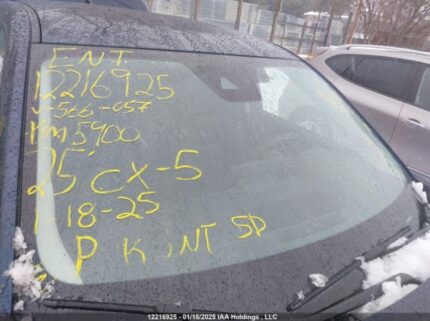 ENT.
12216925
V-566-057
RM5900
25' CX-5
1-18-25
P K INT SD
12216925 - 01/18/2025 IAA Holdings , LLC